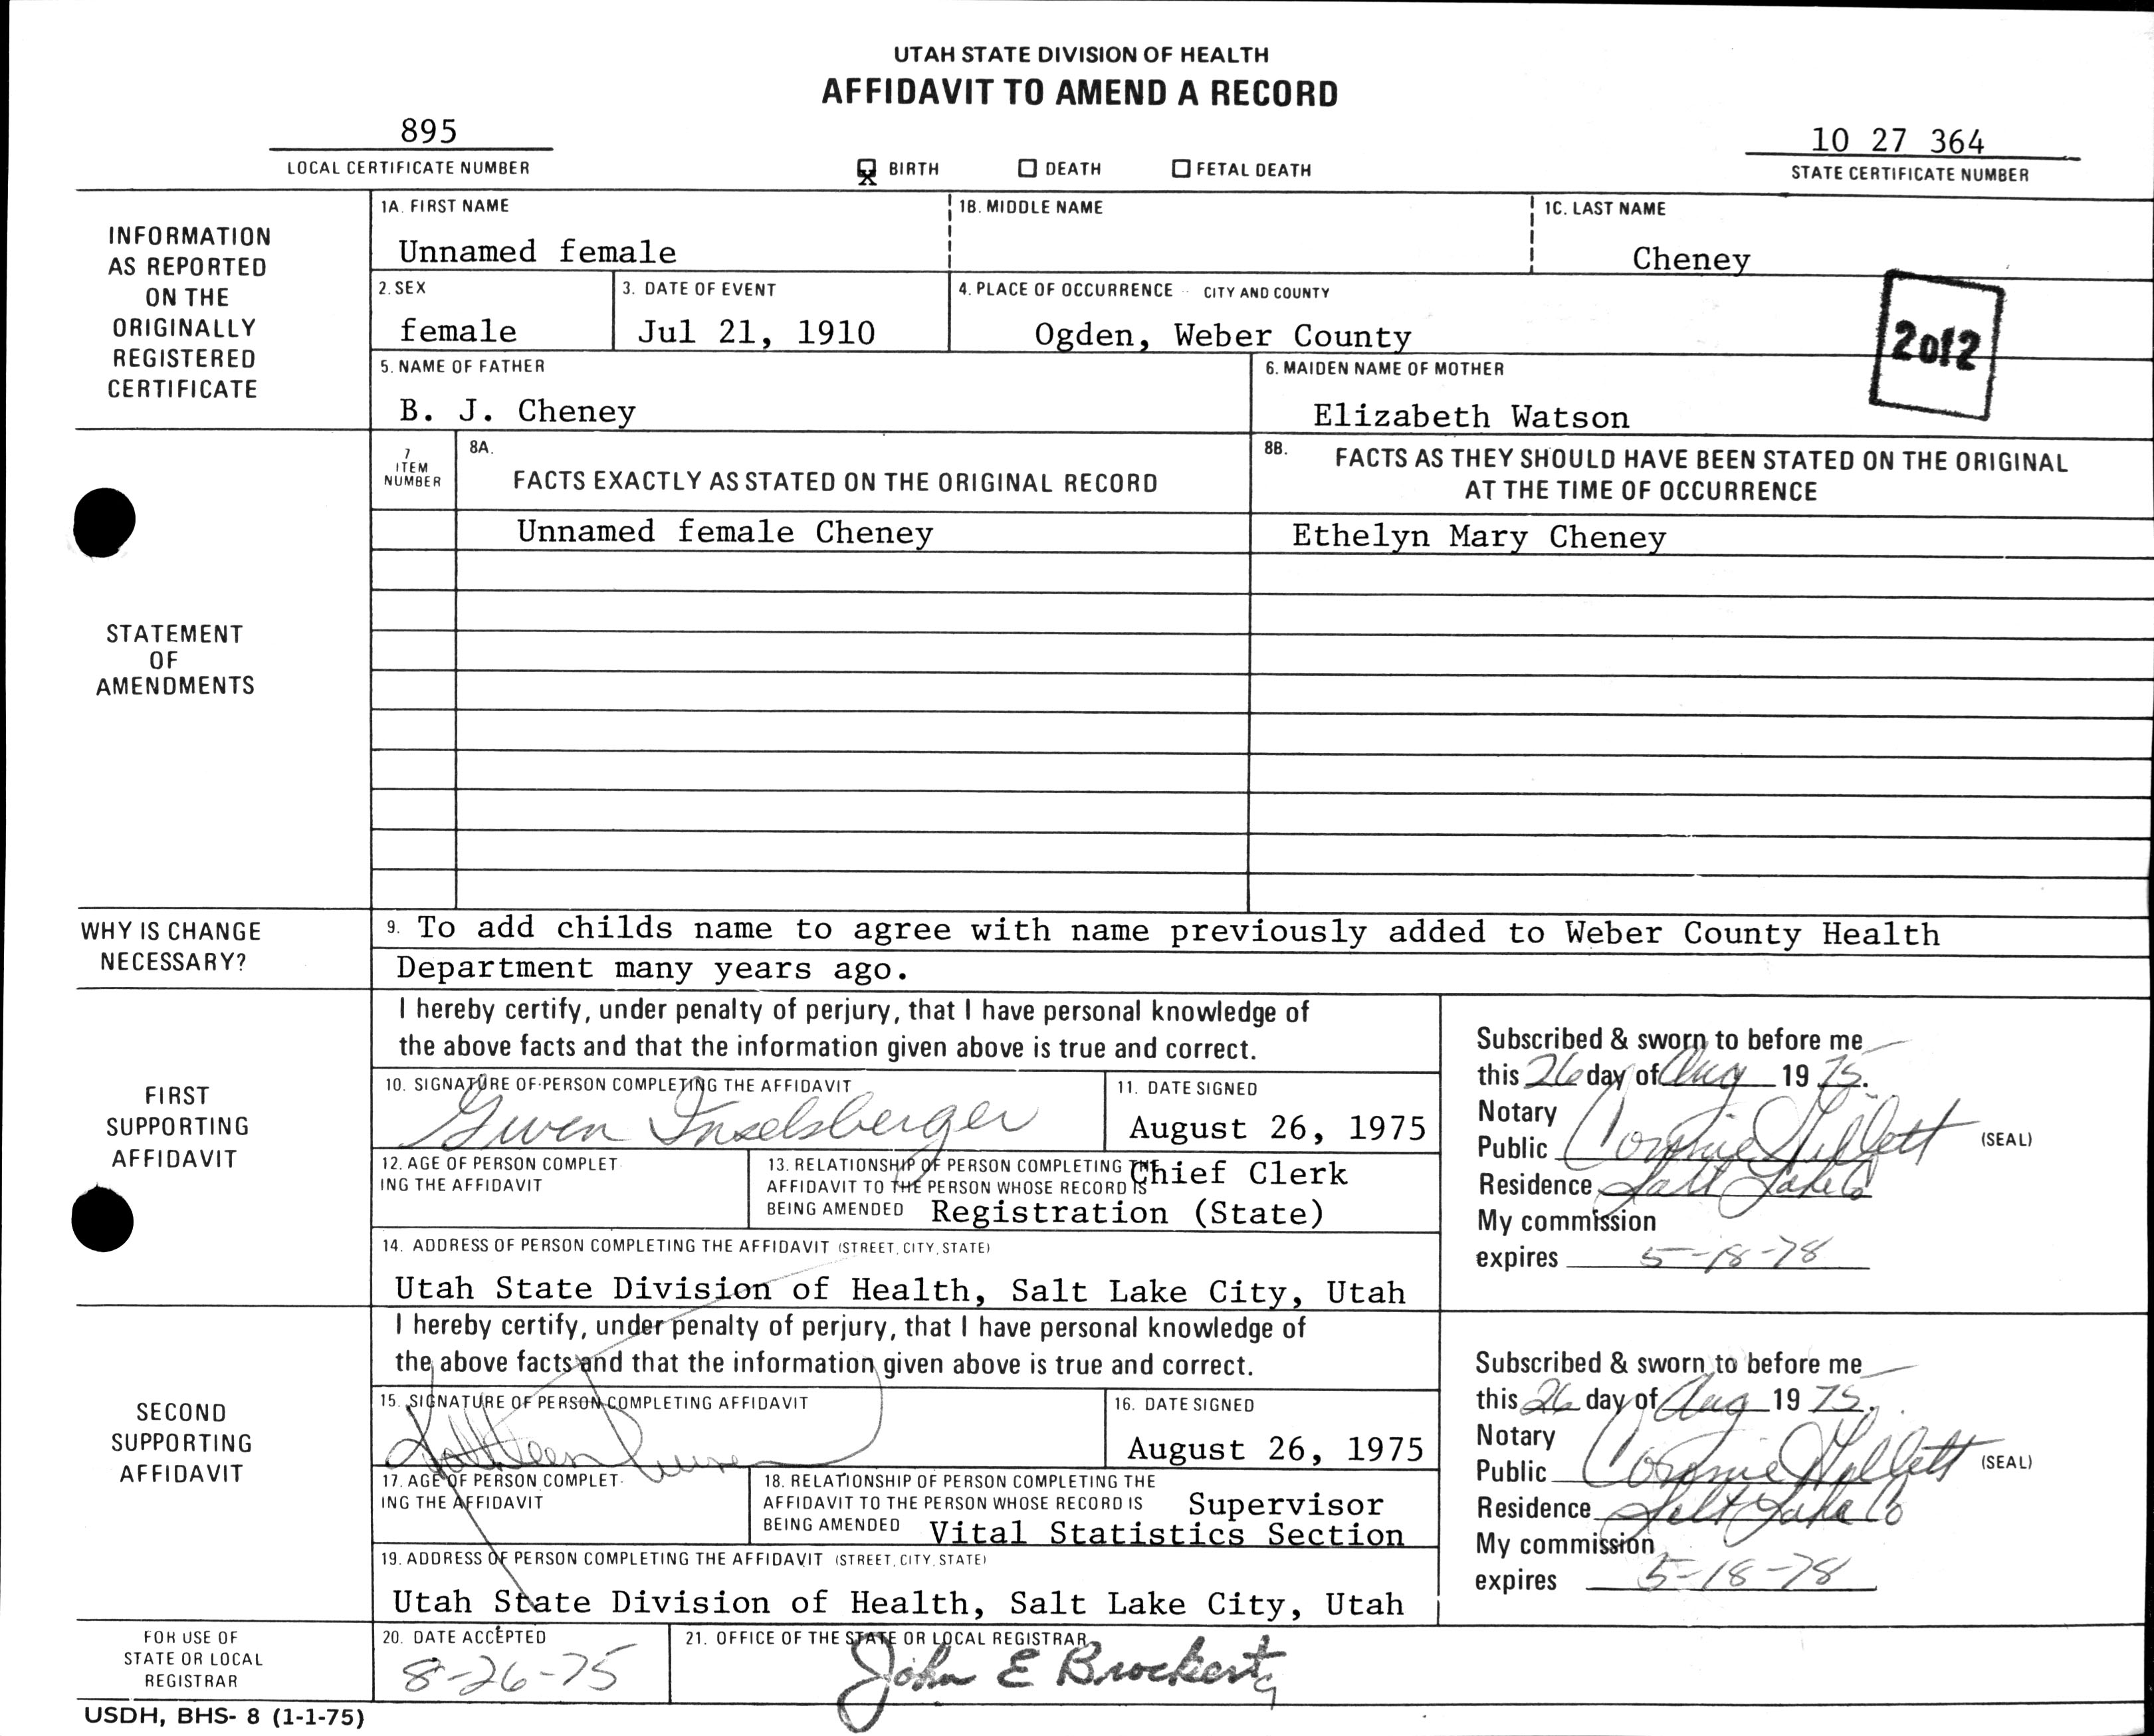 UTAH STATE DIVISION OF HEALTH
AFFIDAVIT TO AMEND A RECORD
895
LOCAL CERTIFICATE NUMBER
X BIRTH
DEATH
FETAL DEATH
10 27 364
STATE CERTIFICATE NUMBER
INFORMATION
AS REPORTED
ON THE
ORIGINALLY
REGISTERED
CERTIFICATE
1A. FIRST NAME
Unnamed female
1B. MIDDLE NAME
1C. LAST NAME
Cheney
2. SEX
female
3. DATE OF EVENT
Jul 21, 1910
4. PLACE OF OCCURRENCE - CITY AND COUNTY
Ogden, Weber County
2of2
5. NAME OF FATHER
B. J. Cheney
6. MAIDEN NAME OF MOTHER
Elizabeth Watson
STATEMENT
OF
AMENDMENTS
7
ITEM
NUMBER
8A.
FACTS EXACTLY AS STATED ON THE ORIGINAL RECORD
8B. FACTS AS THEY SHOULD HAVE BEEN STATED ON THE ORIGINAL
AT THE TIME OF OCCURRENCE
Unnamed female Cheney
Ethelyn Mary Cheney
WHY IS CHANGE
NECESSARY?
9. To add childs name to agree with name previously added to Weber County Health
Department many years ago.
FIRST
SUPPORTING
AFFIDAVIT
I hereby certify, under penalty of perjury, that I have personal knowledge of
the above facts and that the information given above is true and correct.
10. SIGNATURE OF PERSON COMPLETING THE AFFIDAVIT
Gwen Inselsberger
11. DATE SIGNED
August 26, 1975
12. AGE OF PERSON COMPLET-
ING THE AFFIDAVIT
13. RELATIONSHIP OF PERSON COMPLETING THE
AFFIDAVIT TO THE PERSON WHOSE RECORD IS
BEING AMENDED
Chief Clerk
Registration (State)
14. ADDRESS OF PERSON COMPLETING THE AFFIDAVIT (STREET, CITY, STATE)
Utah State Division of Health, Salt Lake City, Utah
Subscribed & sworn to before me
this 26 day of Aug 19 75.
Notary
Public Connie Gillett (SEAL)
Residence Salt Lake Co
My commission
expires 5-18-78
SECOND
SUPPORTING
AFFIDAVIT
I hereby certify, under penalty of perjury, that I have personal knowledge of
the above facts and that the information given above is true and correct.
15. SIGNATURE OF PERSON COMPLETING AFFIDAVIT
Kathleen
16. DATE SIGNED
August 26, 1975
17. AGE OF PERSON COMPLET-
ING THE AFFIDAVIT
18. RELATIONSHIP OF PERSON COMPLETING THE
AFFIDAVIT TO THE PERSON WHOSE RECORD IS
BEING AMENDED
Supervisor
Vital Statistics Section
19. ADDRESS OF PERSON COMPLETING THE AFFIDAVIT (STREET, CITY, STATE)
Utah State Division of Health, Salt Lake City, Utah
Subscribed & sworn to before me
this 26 day of Aug 19 75.
Notary
Public Connie Gillett (SEAL)
Residence Salt Lake Co
My commission
expires 5-18-78
FOR USE OF
STATE OR LOCAL
REGISTRAR
20. DATE ACCEPTED
8-26-75
21. OFFICE OF THE STATE OR LOCAL REGISTRAR
John E Brockert
USDH, BHS- 8 (1-1-75)